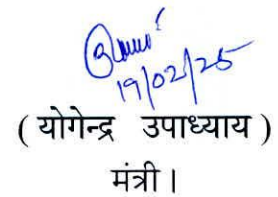 19/02/25
( योगेन्द्र उपाध्याय )
मंत्री ।